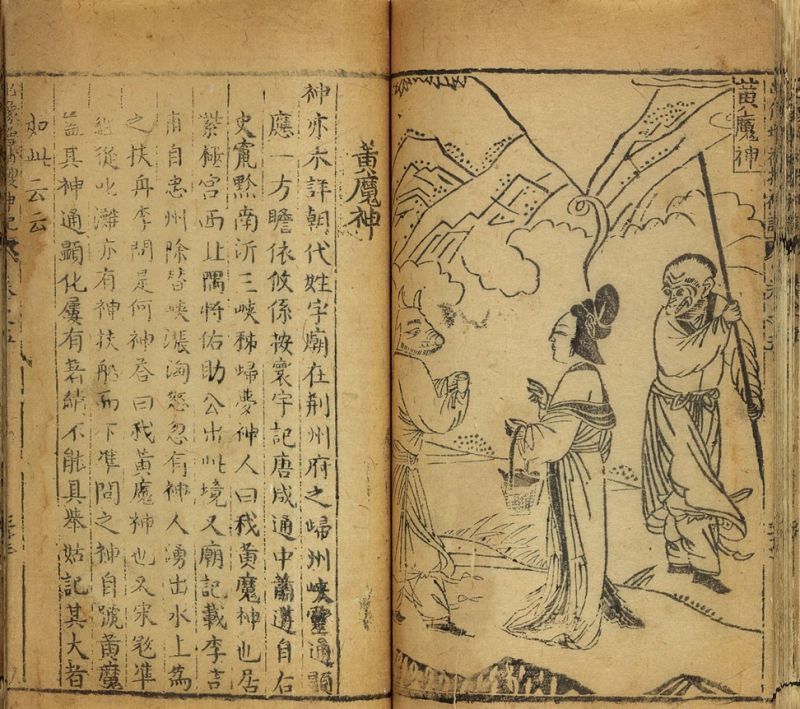 黄魔神
黄魔神
神亦不詳朝代姓字廟在荆州府之歸州峽靈通顯
應一方瞻依攸係按寰宇記唐咸通中蕭遘自右
史竄黔南泝三峽秭歸夢神人曰我黄魔神也居
紫極宮西北隅將佑助公出此境又廟記載李吉
甫自忠州除替峽漲洶怒忽有神人湧出水上為
之扶舟李問是何神荅曰我黄魔神也又宋寇準
經從叱灘亦有神扶船而下準問之神自號黄魔
葢其神通顯化屢有著績不能具舉姑記其大者
如此云云